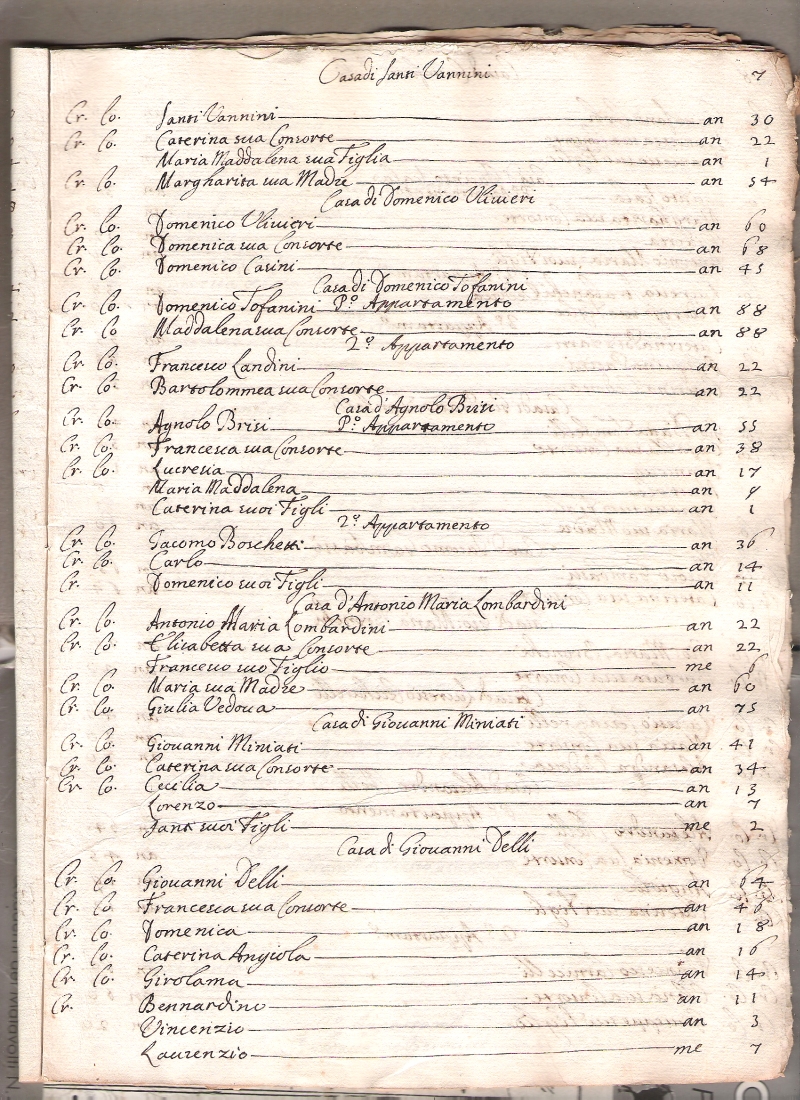 Casa di Santi Vannini 7
Cr. Co. Santi Vannini an 30
Cr. Co. Caterina sua Consorte an 22
Maria Maddalena sua Figlia an 1
Cr. Co. Margharita sua Madre an 54
Casa di Domenico Vlivieri
Cr. Co. Domenico Vlivieri an 60
Cr. Co. Domenica sua Consorte an 68
Cr. Co. Domenico Casini an 45
Casa di Domenico Tofanini
Cr. Co. Domenico Tofanini P.º Appartamento an 88
Cr. Co Maddalena sua Consorte an 88
2.º Appartamento
Cr. Co. Francesco Landini an 22
Cr. Co. Bartolommea sua Consorte an 22
Casa d'Agnolo Brisi
Cr. Co. Agnolo Brisi P.º Appartamento an 55
Cr. Co. Francesca sua Consorte an 38
Cr. Co. Lucresia an 17
Maria Maddalena an 9
Caterina suoi Figli an 1
2.º Appartamento
Cr. Co. Giacomo Boschetti an 36
Cr. Co. Carlo an 14
Cr. Domenico suoi Figli an 11
Casa d'Antonio Maria Lombardini
Cr. Co. Antonio Maria Lombardini an 22
Cr. Co. Elisabetta sua Consorte an 22
Francesco suo Figlio me 6
Cr. Co. Maria sua Madre an 60
Cr. Co. Giulia Vedova an 75
Casa di Giovanni Miniati
Cr. Co. Giovanni Miniati an 41
Cr. Co. Caterina sua Consorte an 34
Cr. Co. Cecilia an 13
Lorenzo an 7
Santi suoi Figli me 2
Casa di Giovanni Delli
Cr. Co. Giovanni Delli an 64
Cr. Co. Francesca sua Consorte an 46
Cr. Co. Domenica an 18
Cr. Co. Caterina Angiola an 16
Cr. Co. Girolama an 14
Cr. Bennardino an 11
Vincenzio an 3
Laurenzio me 7